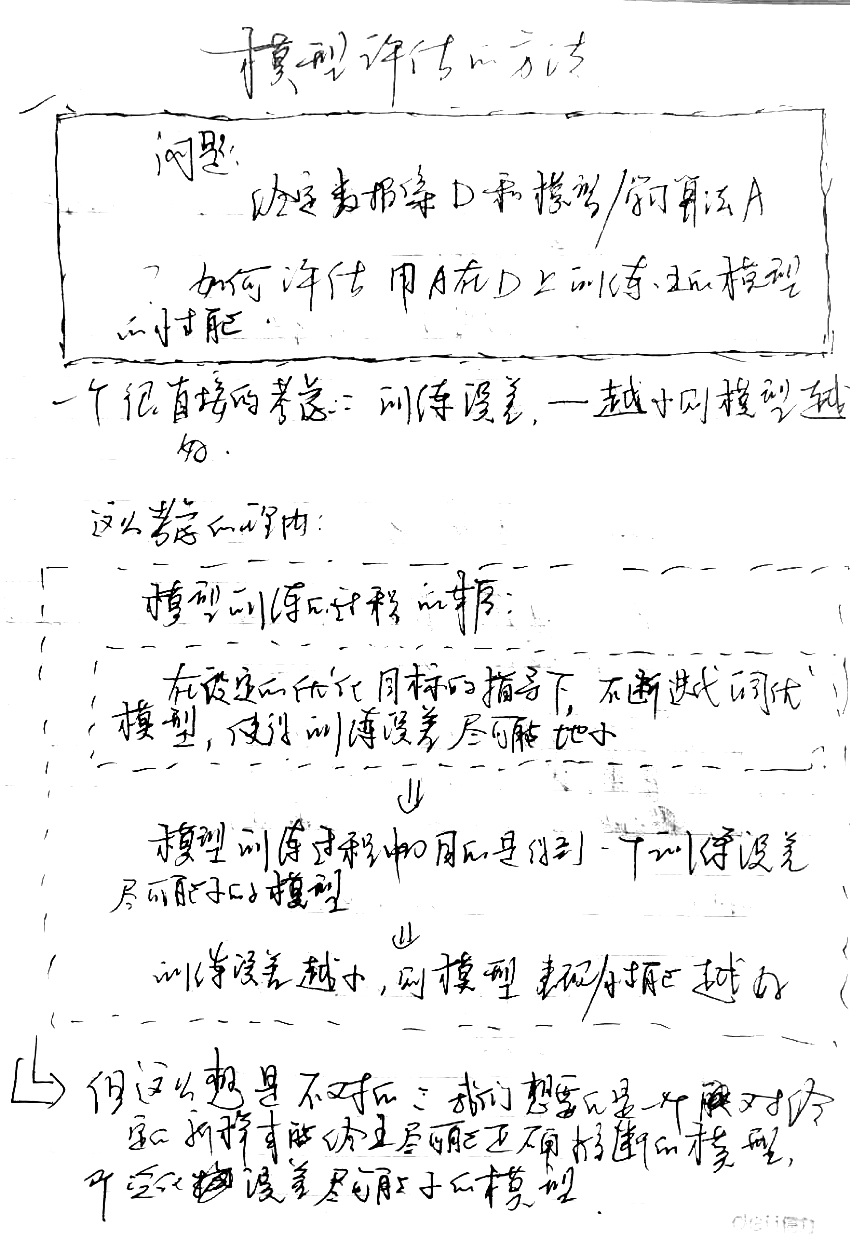 模型评估的方法
问题:
给定数据集D和模型/学习算法A
? 如何评估用A在D上训练出的模型
的性能.
一个很直接的考虑:: 训练误差, 一越小则模型越
好.
这么考虑的理由:
模型训练的过程的本质:
在设定的优化目标的指导下, 不断迭代调优
模型, 使得训练误差尽可能地小
⇓
模型训练过程中的目的是得到一个训练误差
尽可能小的模型
⇓
训练误差越小, 则模型表现/性能越好
但这么想是不对的: 我们想要的是一个能对给
定的新样本能给出尽可能正确推断的模型,
即泛化误差尽可能小的模型.